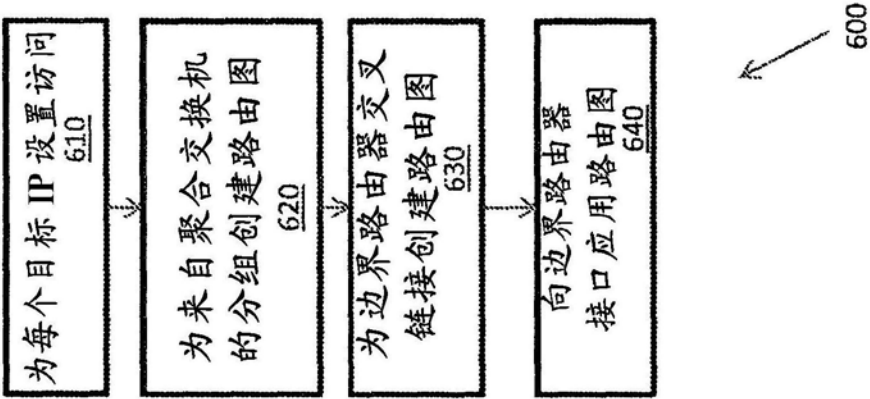 为每个目标 IP 设置访问
610
为来自聚合交换机
的分组创建路由图
620
为边界路由器交叉
链接创建路由图
630
向边界路由器
接口应用路由图
640
600